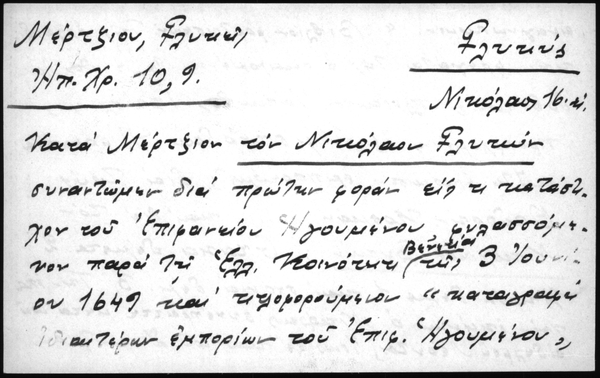 Μέρτζιον, Γλυκεῖς
Γλυκύς
Ἠπ. Χρ. 10, 9.
Νικόλαος 16-αἰ.
Κατά Μέρτζιον τόν Νικόλαον Γλυκύν
συναντῶμεν διά πρώτην φοράν εἰς τι κατάστι-
χον τοῦ Ἐπιφανείου Ἡγουμένου φυλασσόμε-
νον παρά τῇ Ἑλλ. Κοινότητι Βενετίας τῆς 3 Ἰουνί-
ου 1649 καί τιτλοφορούμενον "καταγραφή
ἰδιαιτέρων ἐμπορίων τοῦ Ἐπιφ. Ἡγουμένου"